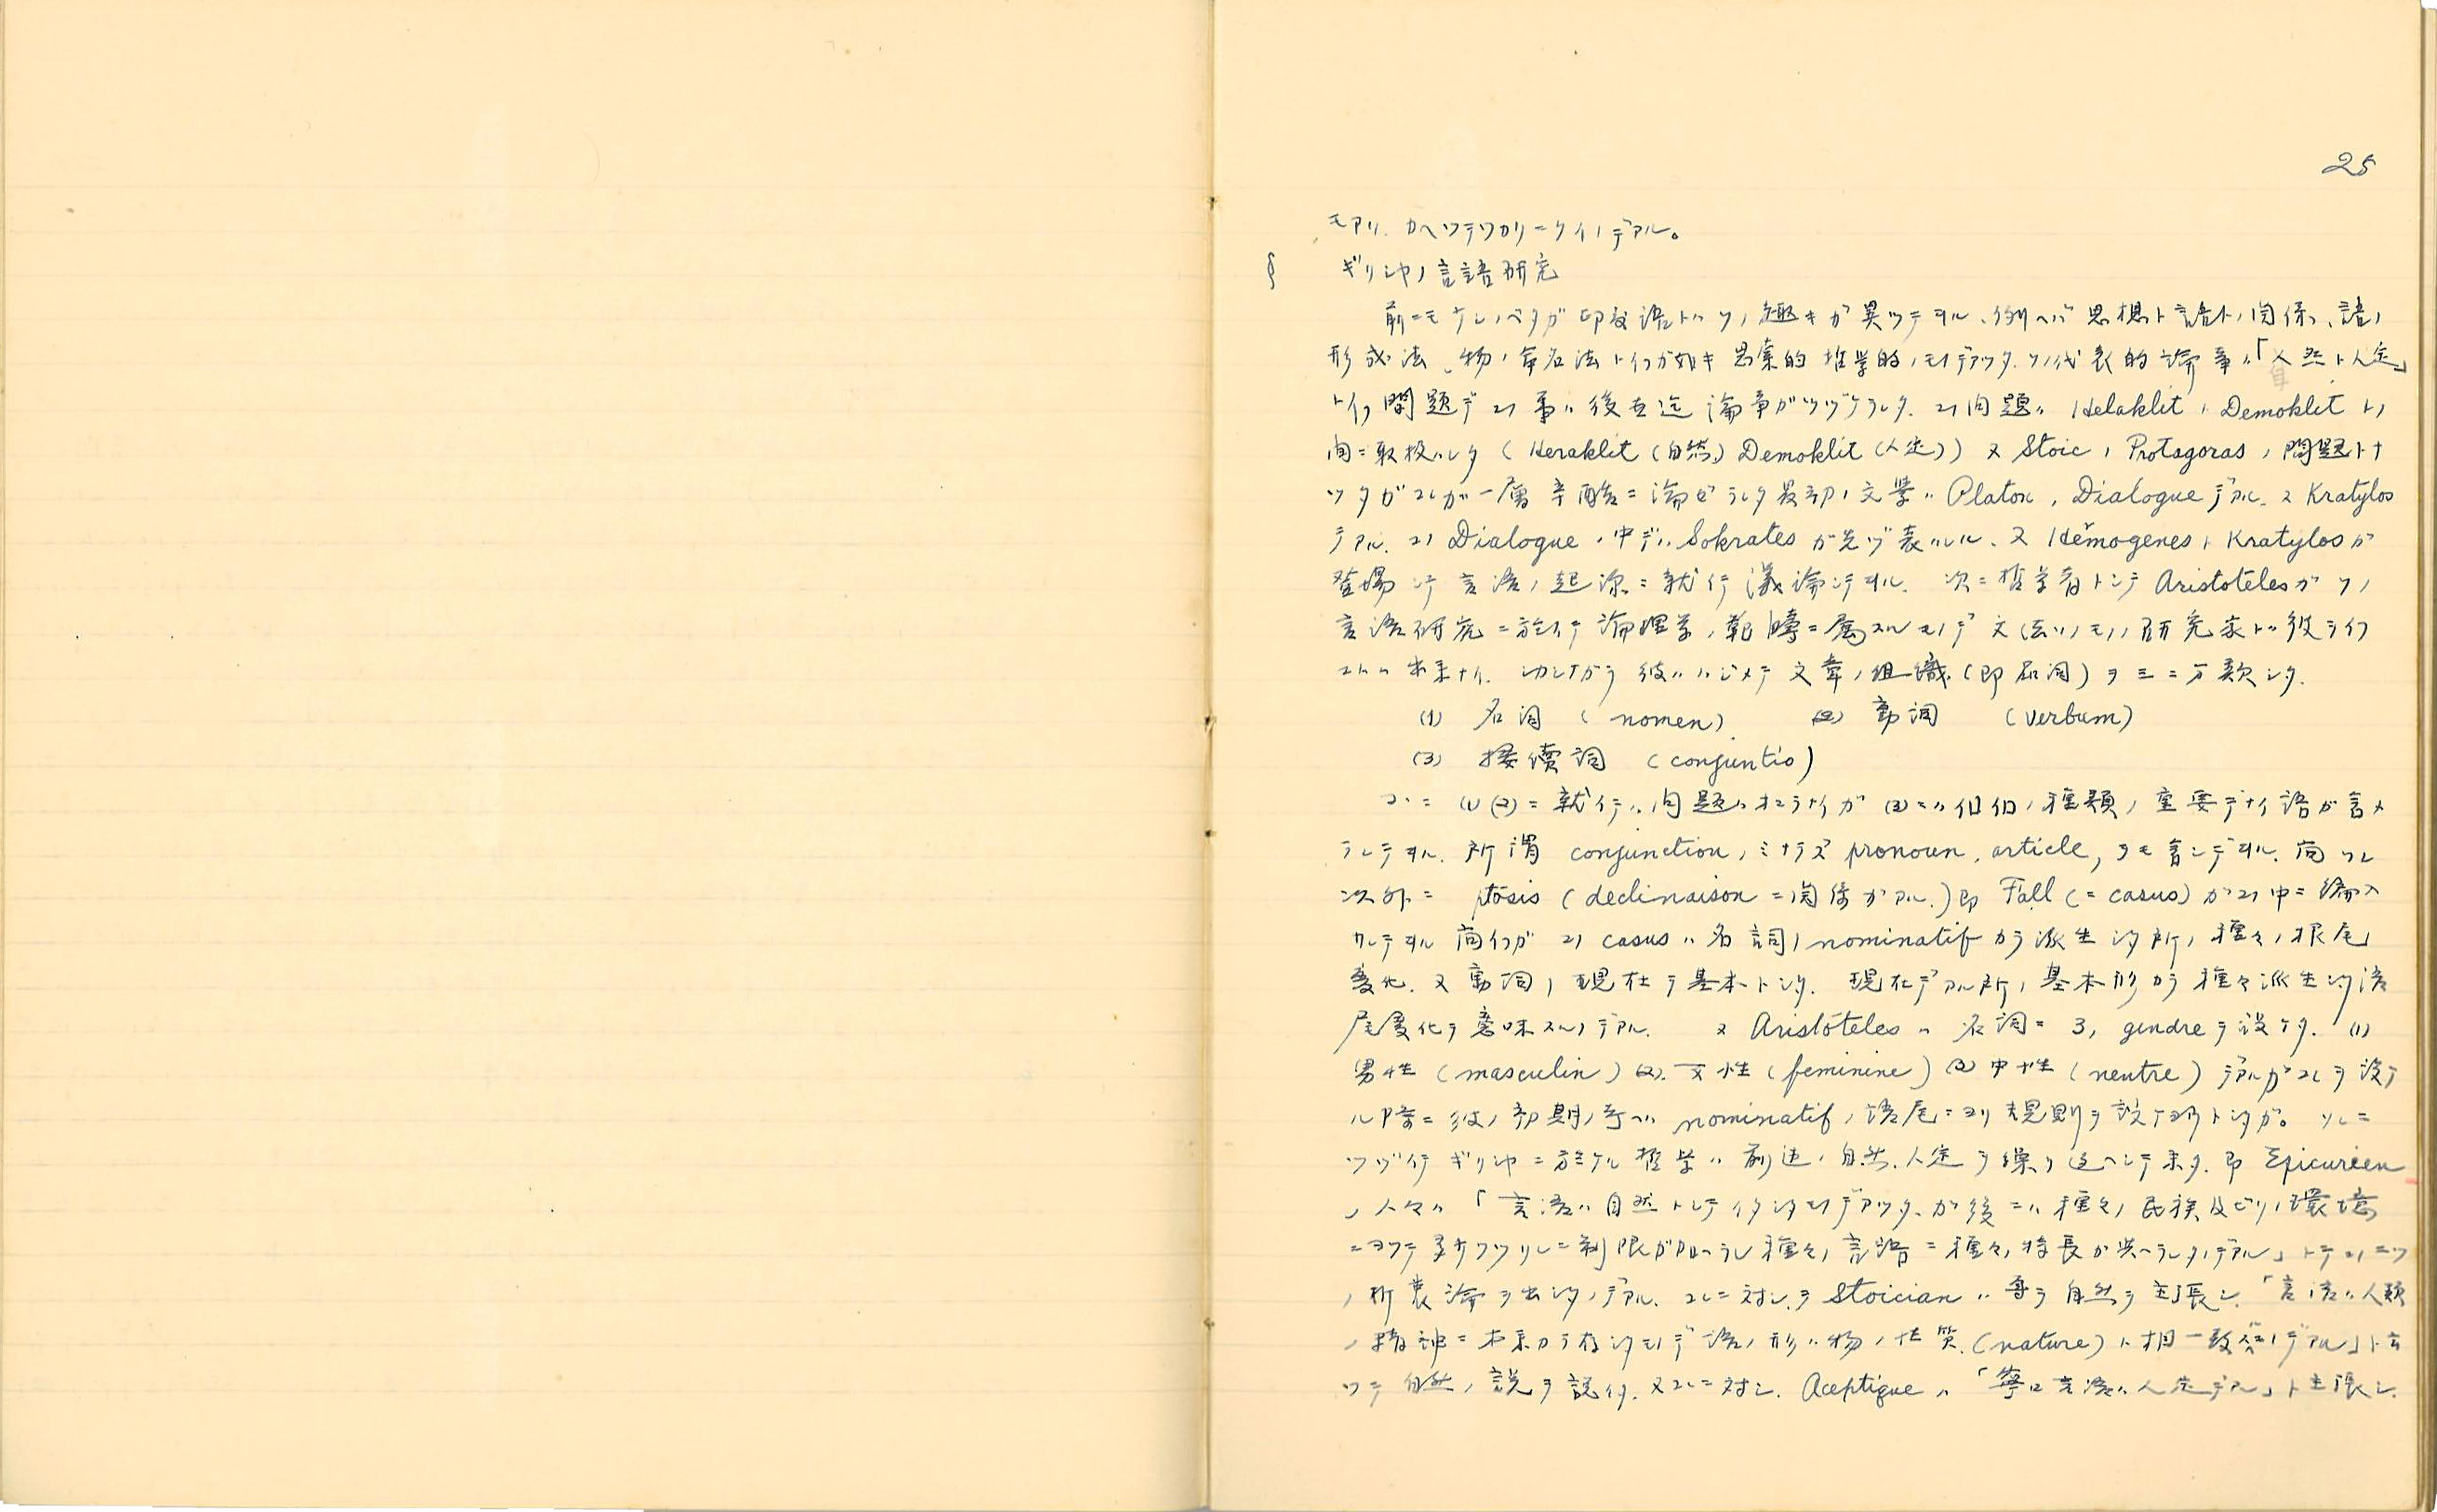 25
モアリ. カヘツテワカリニクイノデアル。
§ ギリシヤノ言語研究
前ニモ少シノベタガ印度語トハソノ趣キガ異ツテヰル、例ヘバ思想ト語トノ関係、語ノ
形成法、物ノ命名法トイフガ如キ思索的哲学的ノモノデアツタ. ソノ代表的論争ハ「自然ト人定」
トイフ問題デコノ事ハ後世迄論争ガツヅケラレタ. コノ問題ハ Helaklit ト Demoklit トノ
間ニ取扱ハレタ ( Heraklit (自然) Demoklit (人定)) 又 Stoic, Protagoras ノ問題トナ
ツタガコレガ一層辛酷ニ論ゼラレタ最初ノ文学ハ Platon ノ Dialogue デアル. 又 Kratylos
デアル. コノ Dialogue ノ中デハ Sokrates ガ先ヅ表ハレル、又 Hermogenes ト Kratylos ガ
登場シテ言語ノ起源ニ就イテ議論シテヰル. 次ニ哲学者トシテ Aristoteles ガソノ
言語研究ニ於イテ論理学ノ範疇ニ属スルモノデ文法ソノモノノ研究家トハ彼ヲイフ
コトハ出来ナイ. シカシナガラ彼ハハジメテ文章ノ組織 (即品詞) ヲ三ニ分類シタ.
(1) 名詞 ( nomen) (2) 動詞 (verbum)
(3) 接続詞 (conjuntio)
コヽニ (1) (2) ニ就イテハ問題ハオコラナイガ (3) ニハ個個ノ種類ノ重要デナイ語ガ含メ
ラレテヰル. 所謂 conjunction ノミナラズ pronoun, article, ヲモ含ンデヰル. 尚ソレ
以外ニ ptōsis (declinaison ニ関係ガアル.) 即 Fall (= casus) ガコノ中ニ編入
サレテヰル 尚イフガコノ casus ハ名詞ノ nominatif カラ派生シタ所ノ種々ノ根尾
変化. 又動詞ノ現在ヲ基本トシタ. 現在デアル所ノ基本形カラ種々派生シタ語
尾変化ヲ意味スルノデアル. 又 Aristoteles ハ名詞ニ 3ノ gendre ヲ設ケタ. (1)
男性 (masculin) (2). 女性 (feminine) (3) 中性 (neutre) デアルガコレヲ設ケ
ル時ニ彼ノ初期ノ考ハ nominatif ノ語尾ニヨリ規則ヲ設ケヨウトシタガ。ソレニ
ツヅイテギリシヤニ於ケル哲学ハ前述ノ自然、人定ヲ繰リ返ヘシテ来タ. 即 Epicureen
ノ人々ハ「言語ハ自然トシテイタシタモノデアツタ、ガ後ニハ種々ノ民族及ビソノ環境
ニヨツテ異ナリソレニ制限ガ加ヘラレ種々ノ言語ニ種々ノ特長ガ与ヘラレタノデアル」トテコノ二ツ
ノ折衷論ヲ出シタノデアル. コレニ対シテ Stoician ハ専ラ自然ヲ主張シ.「言語ハ人類
ノ精神ニ本来カラ存シタモノデ語ノ形ハ物ノ性質 (nature) ト相一致スルノデアル」ト云
ツテ自然ノ説ヲ認イタ. 又コレニ対シ. Aceptique ハ「寧ロ言語ハ人定デアル」ト主張シ.